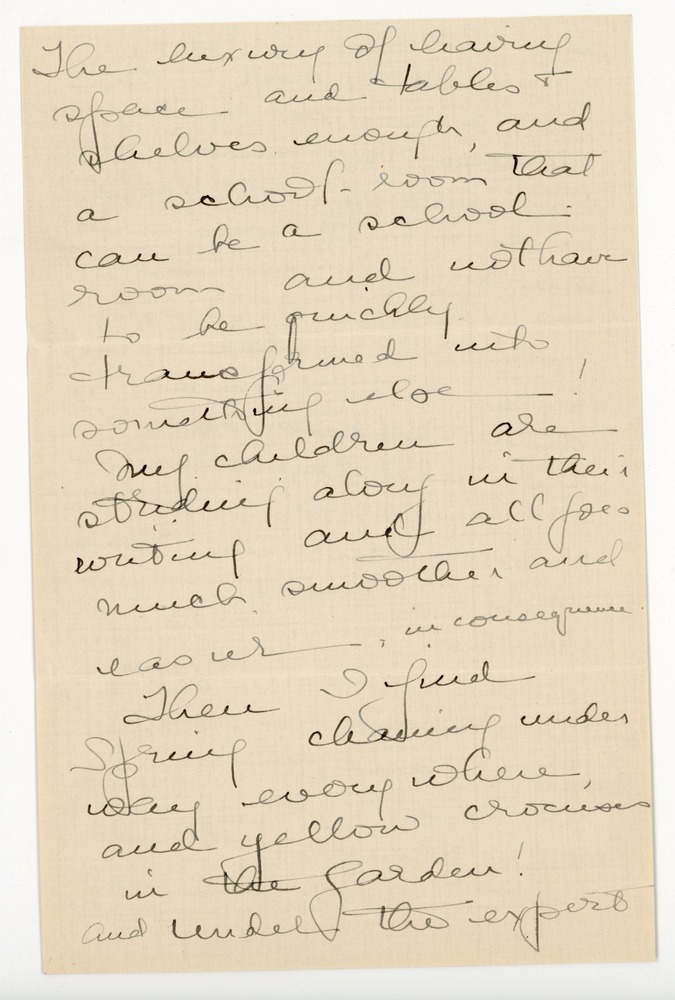 The luxury of having
space and tables &
shelves enough, and
a school-room that
can be a school-
room and not have
to be quickly
transformed into
something else!
My children are
striding along in their
writing and all goes
much smoother and
easier, in consequence.
Then I find
Spring cleaning under
way every where,
and yellow crocuses
in the garden!
and under the expert